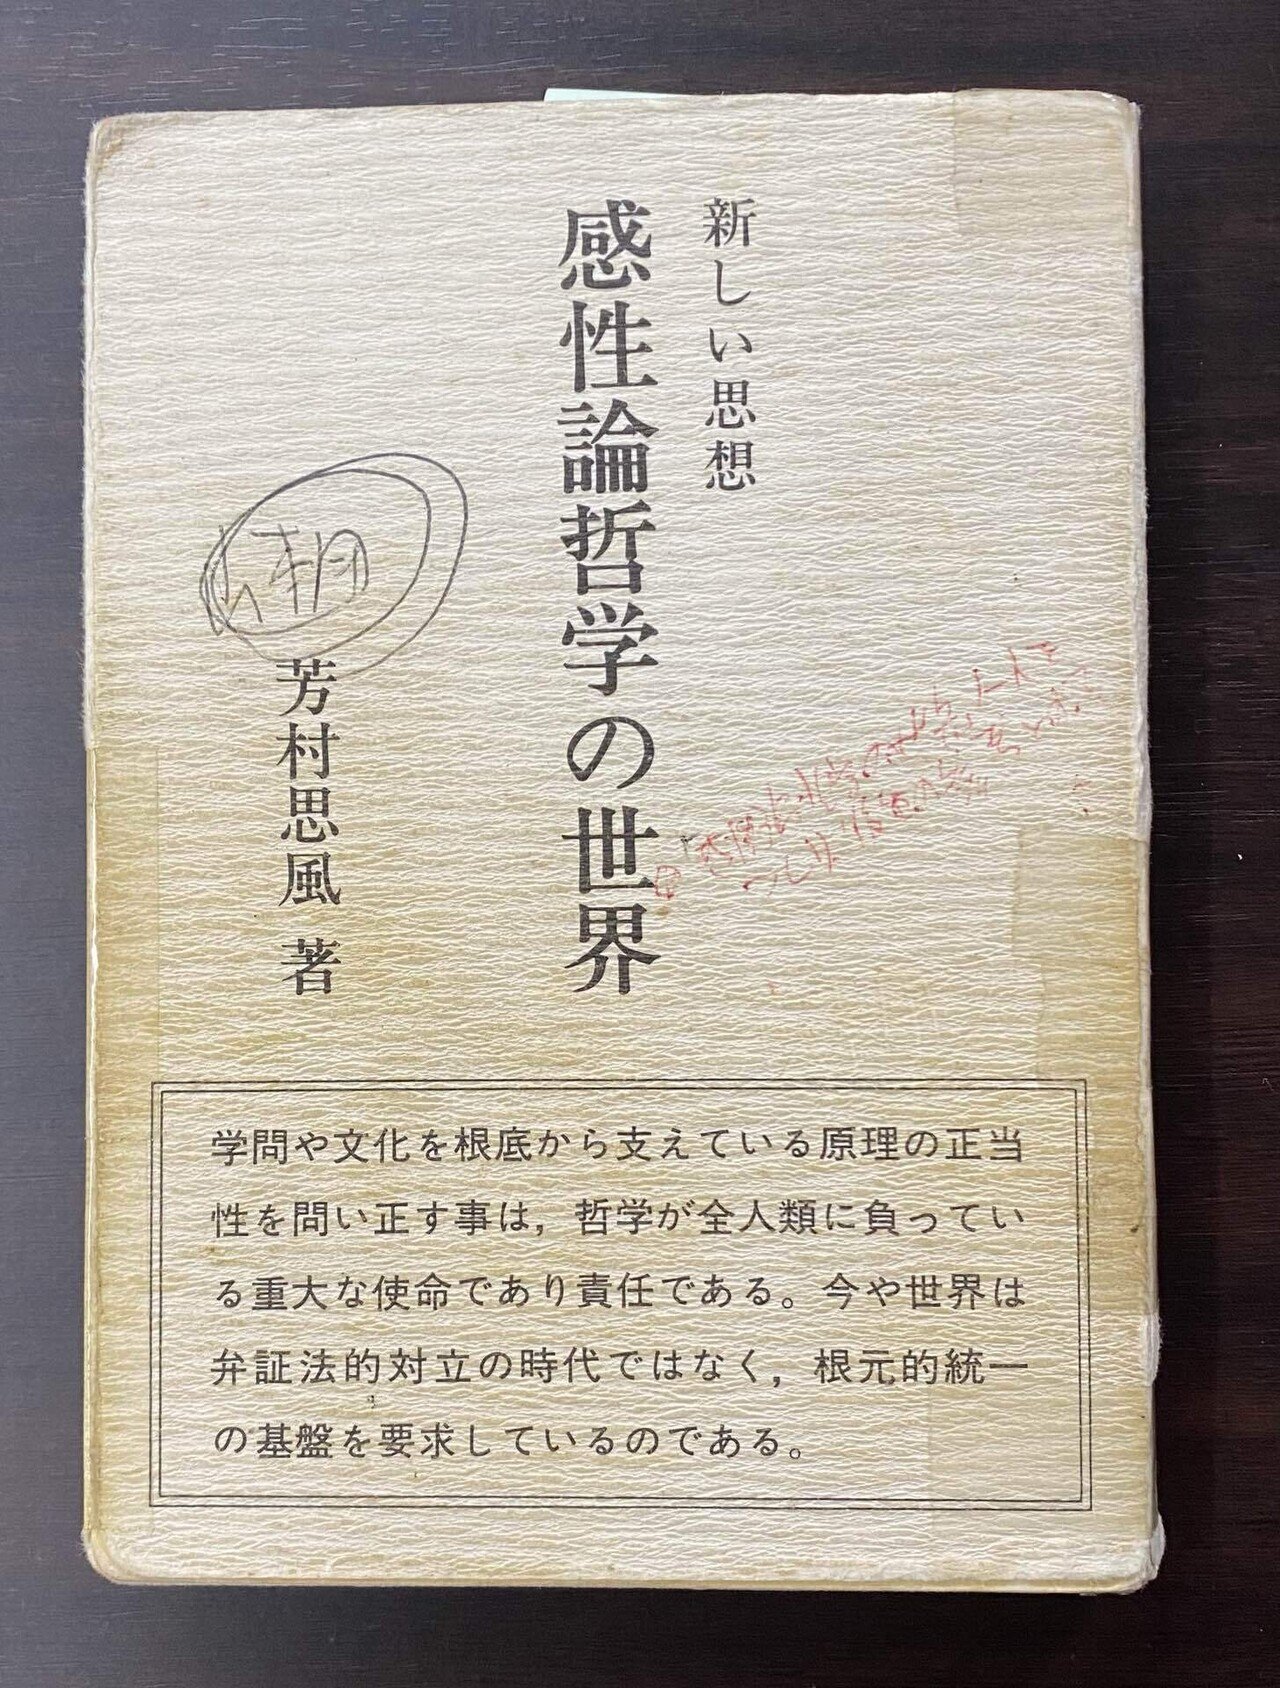 新しい思想
感性論哲学の世界
芳村思風 著
学問や文化を根底から支えている原理の正当
性を問い正す事は，哲学が全人類に負ってい
る重大な使命であり責任である。今や世界は
弁証法的対立の時代ではなく，根元的統一
の基盤を要求しているのである。